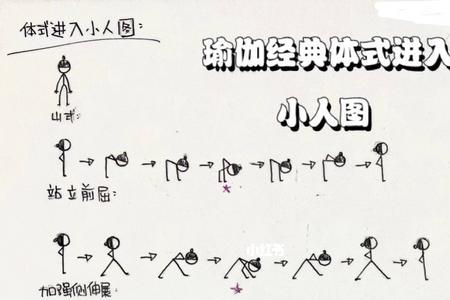 体式进入小人图:
瑜伽经典体式进入
小人图
山式:
站立前屈:
小红书
加强侧伸展